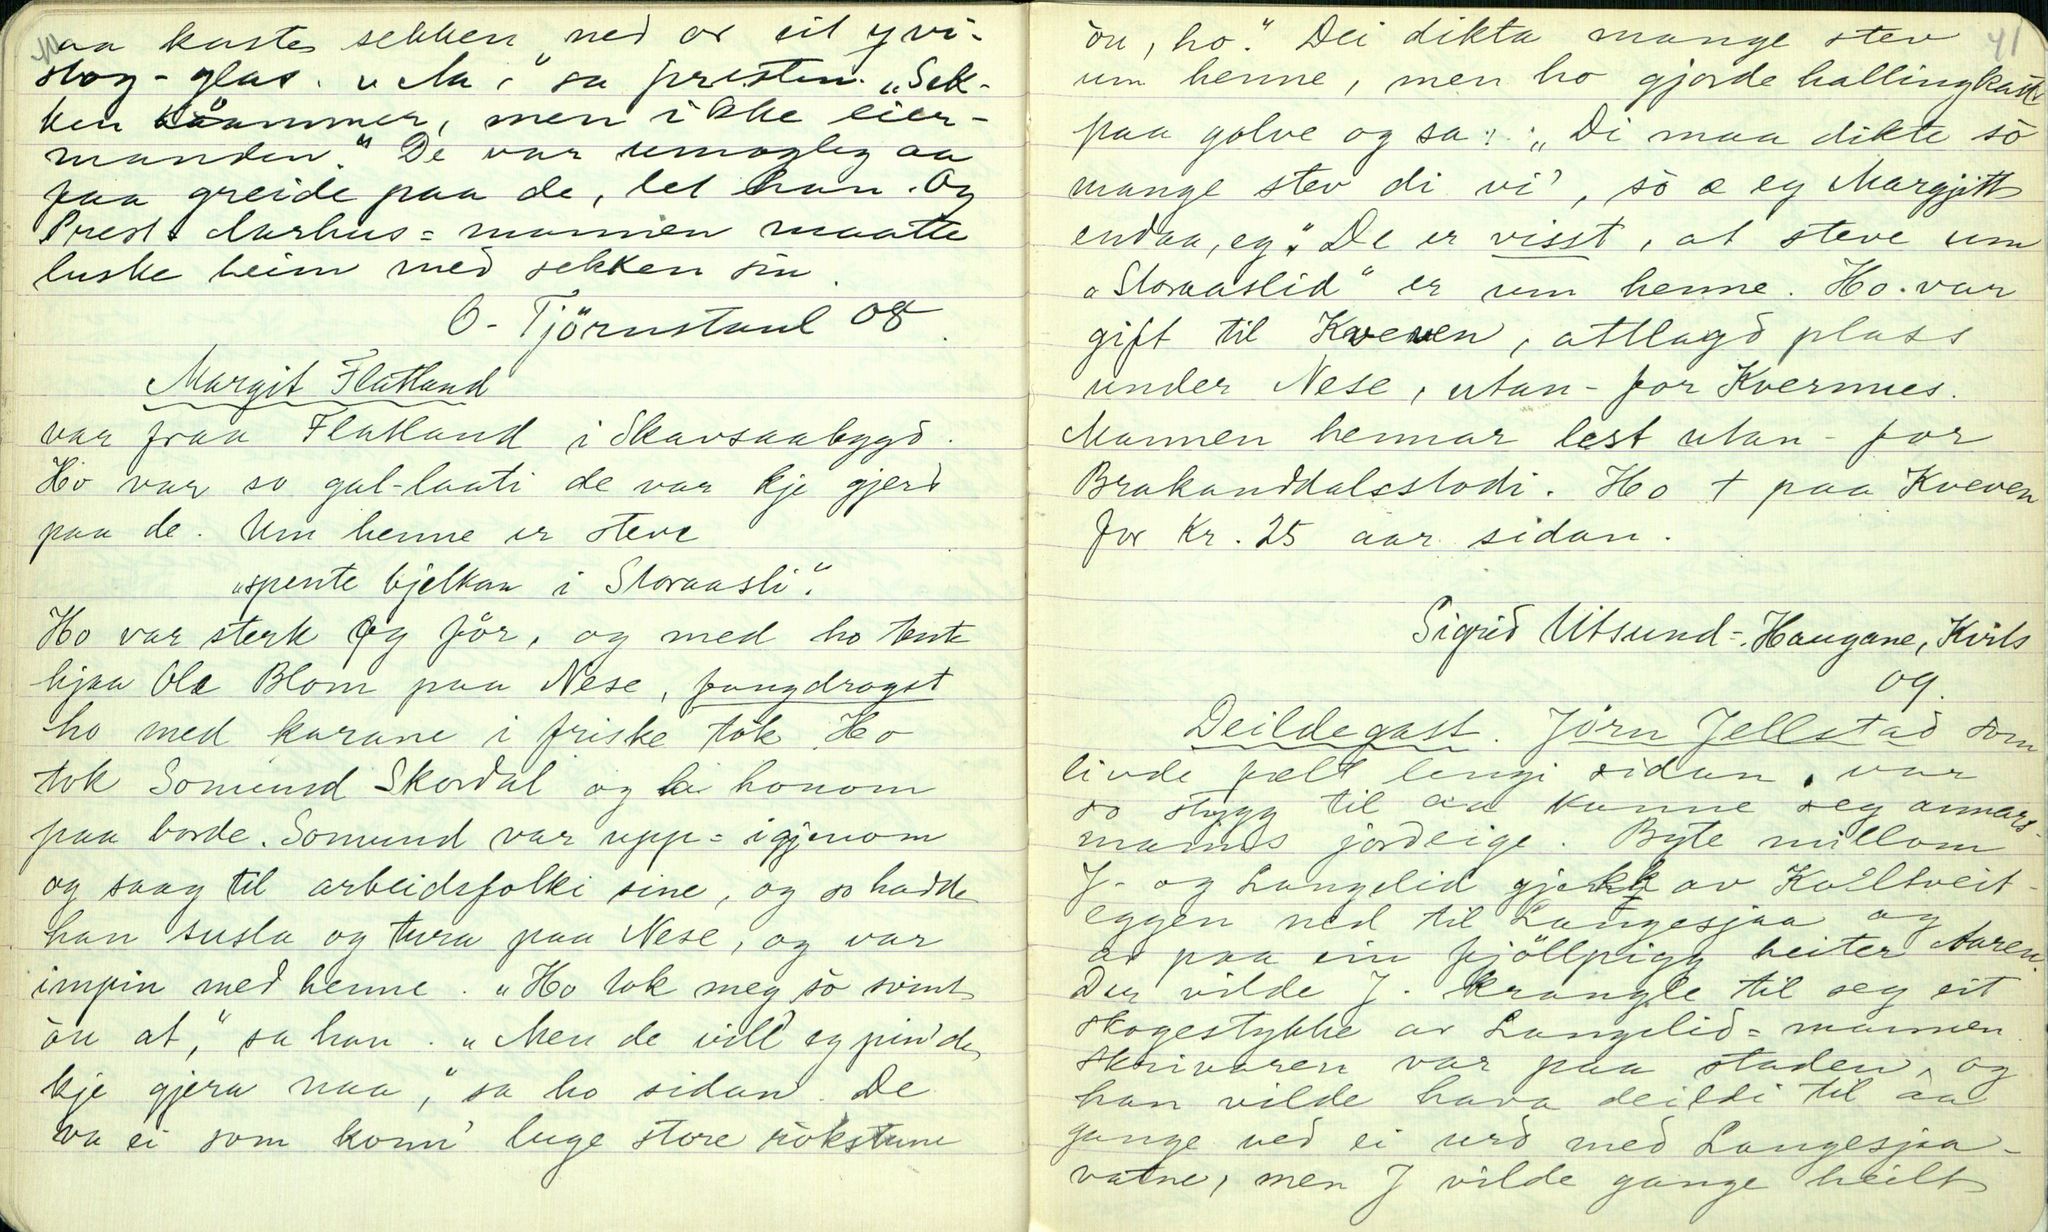 aa kaste sekken ned or eit yvi-
stog-glas. „Na," sa presten. „Sek-
ken kåmmer, men ikke eier-
manden." De var umogleg aa
faa greide paa de, let han. Og
Prest Aarhus-mannen maatte
luske heim med sekken sin
O. Tjörnstaul 08.
Margit Flatland
var fraa Flatland i Skavsaabygd.
Ho var so gal-laati de var kje gjerd
paa de. Um henne er steve
„spente bjelkan i Storaasli".
Ho var sterk og för, og med ho tente
hjaa Ole Blom paa Nese, fangdrogst
ho med karane i friske tök. Ho
tok Somund Skordal og la honom
paa borde. Somund var upp-igjenom
og saag til arbeidsfolki sine, og so hadde
han susla og tura paa Nese, og var
impin med henne. „Ho tok meg so svint
ön at," sa han. „Men de vill' eg pin' de
kje gjera naa," sa ho sidan. De
va ei som konn' luge store rökstune
41
ön, ho." Dei dikta mange stev
um henne, men ho gjorde hallingkast
paa golve og sa: „Di maa dikte so
mange stev di vi', so æ eg Margjitt
endaa, eg". De er visst, at steve um
„Storaaslid" er um henne. Ho var
gift til Kveven, attlagd plass
under Nese, utan-for Kvernnes.
Mannen hennar lest utan-for
Brakanddalsstodi. Ho + paa Kveven
for Kr. 25 aar sidan.
Sigrid Utsund-Haugane, Kvits
09.
Deildegast. Jörn Jellstad som
livde fælt lengi sidan, var
so stygg til aa kunne seg annars-
manns jordeige. Byte millom
J. og Langelid gjekk av Kolltveit-
eggen ned til Langesjaa og
av paa ein fjöllpigg heiter Aaren.
Der vilde J. krangle til seg eit
skogestykke av Langelid-mannen.
Skrivaren var paa staden, og
han vilde hava deildi til aa
gange ved ei urd med Langesjaa-
vatne, men J vilde gange heilt